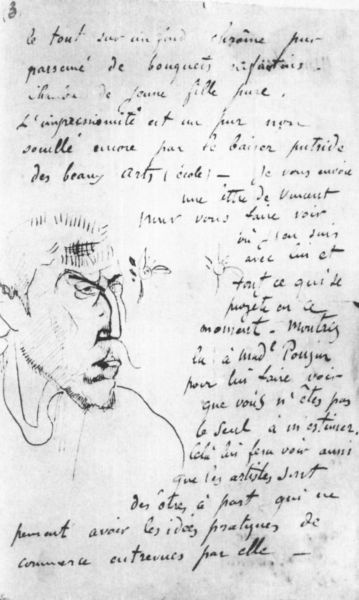 3
le tout sur un fond chrôme pur
parsemé de bouquets enfantins.
Chambre de jeune fille pure.
L'impressioniste est un pur non
souillé encore par le baiser putride
des beaux arts (école) — Je vous envoie
une lettre de Vincent
pour vous faire voir
où j'en suis
avec lui et
tout ce qui se
projète en ce
moment. Montrez
la à Mad
pour lui faire voir
que vous n'êtes pas
le seul à m'estimer.
Celà lui fera voir aussi
que les artistes sont
des êtres à part qui ne
peuvent avoir les idées pratiques de
commerce entrevues par elle —